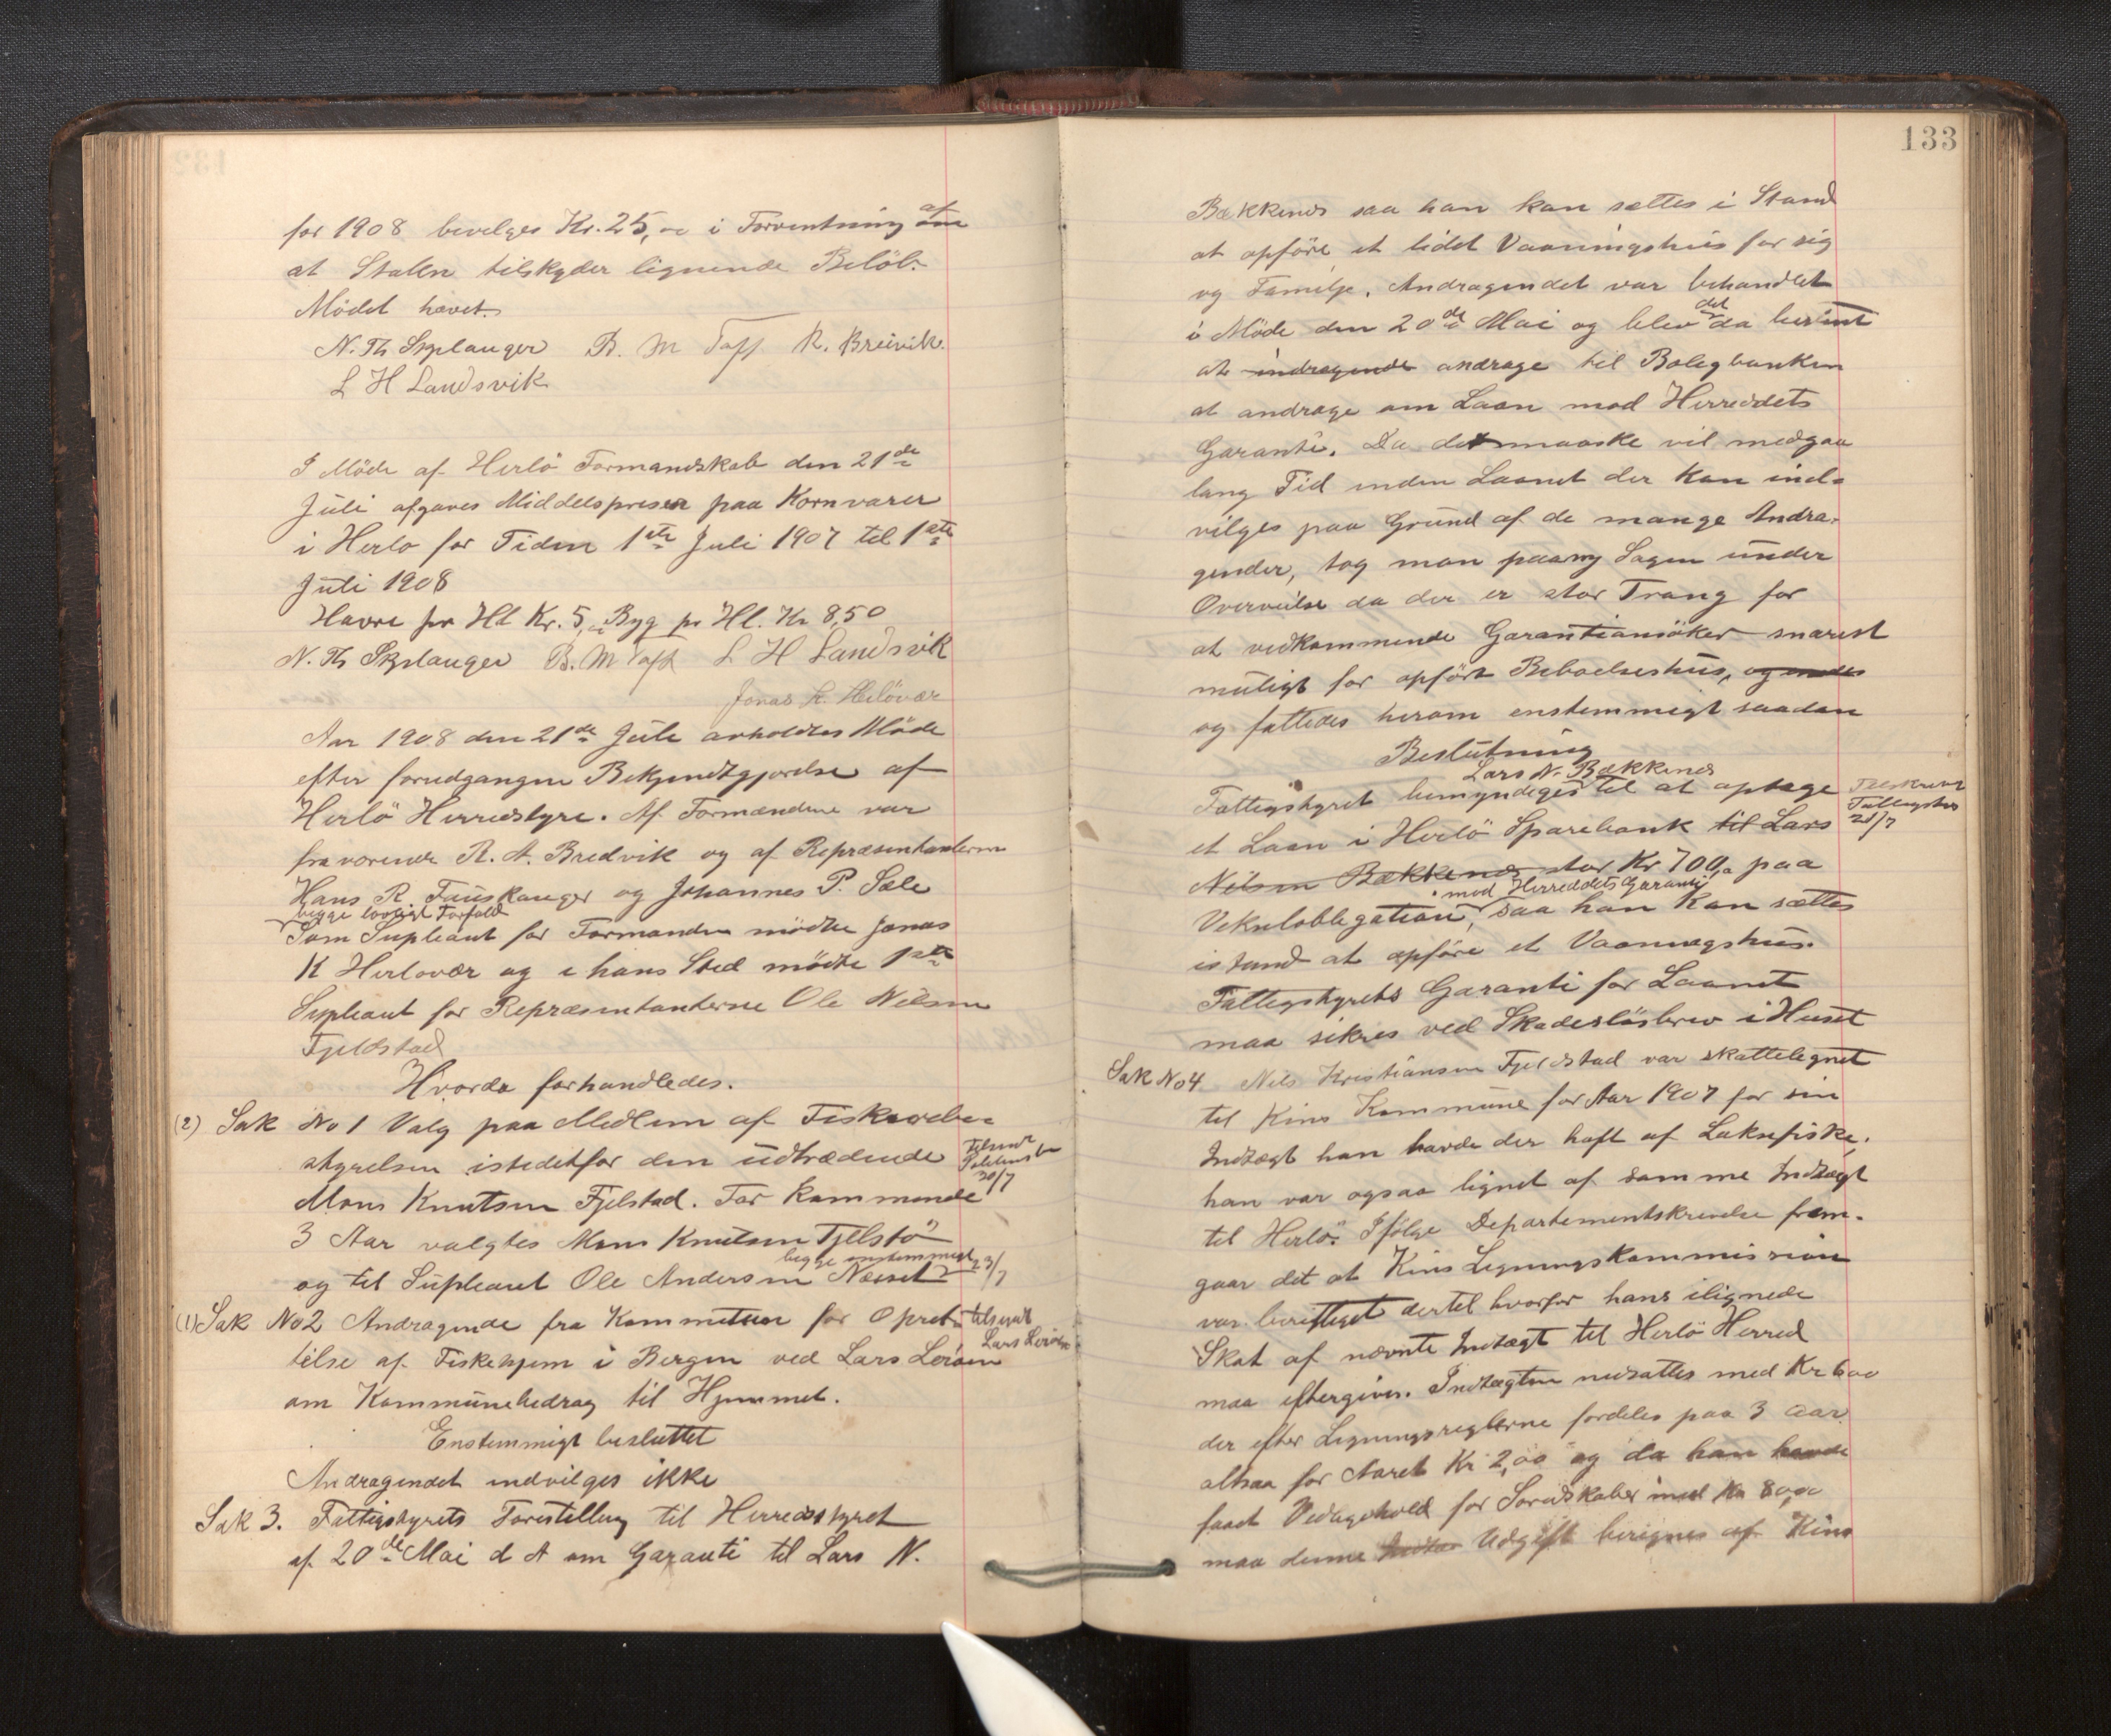 for 1908 bevelges Kr. 25,oo i Forventning om af
at Staten tilskyder lignende Beløb.
Mødet hævet.
N. Th Skjelanger B. M Toft R. Breivik.
L H Landsvik
I Møde af Herlö Formandskab den 21de
Juli afgaves Middelspriser paa Kornvarer
i Herlo for Tiden 1ste Juli 1907 til 1ste
Juli 1908
Havre pr Hl Kr. 5, Byg pr Hl. Kr 8,50
N. Th Skjelanger B. M Toft L H Landsvik
Jonas K. Herlövær
Aar 1908 den 21de Juli avholdtes Möde
efter forudgangen Bekjendtgjørelse af
Herlö Herredstyre. Af Formændene var
fraværende R. A. Bredvik og af Repræsentanterne
Hans R Fauskanger og Johannes P. Sæle
begge lovligt Forfald
Som Supleant for Formanden mödte Jonas
K Herlovær og i hans Sted mödte 1ste
Supleant for Repræsentanterne Ole Nilsen
Fjeldstad
Hvorda forhandledes.
(2) Sak No 1 Valg paa Medlem af Fiskeredsstyrelsen
istedetfor den udtrædende
tilsendt
30/7
Mons Knutsen Fjelstad. For kommende
3 Aar valgtes Mons Knutsen Fjelstö
begge enstemmigt 23/7
og til Supleant Ole Andersen Næsset
(1) Sak No 2 Andragende fra Kommiteen for Opret- tilsendt
telse af Fiskehjem i Bergen ved Lars Leröen Lars Leröen
om Kommunebedrag til Hjemmet.
Enstemmigt besluttet
Andragendet indvilges ikke
Sak 3. Fattigstyrets Forestilling til Herredsstyret
af 20de Mai d A om Garanti til Lars N.
133
Bækkenes saa han kan sættes i Stand
at opföre et lidet Vaaningshus for sig
og Familje. Andragendet var behandlet
i Möde den 20de Mai og blev det da bestemt
at indragende andrage til Boligbanken
at andrage om Laan mod Herreddets
Garanti. Da det maaske vil medgaa
lang Tid inden Laanet der kan ind-
vilges paa Grund af de mange Andra-
gender, tog man paany Sagen under
Overveielse da der er stor Trang for
at vedkommende Garantiansöker snarest
muligt for opfört Beboelseshus,
og fattedes herom enstemmigt saadan
Beslutning
Lars N. Bækkenes
Fattigstyret bemyndiges til at optage Tilskrevet
et Laan i Herlö Sparebank til Lars Fattigstyret 21/7
Nilsen Bækkenes stor Kr 700,oo paa
mod Herreddets Garanti
Vekselobligation, saa han kan sættes
istand at opföre et Vaaningshus.
Fattigstyrets Garanti for Laanet
maa sikres ved Skadeslösbrev i Huset
Sak No 4 Nils Kristiansen Fjeldstad var skattelignet
til Kins Kommune for Aar 1907 for sin
Indtægt han havde der haft af Laksefiske,
han var ogsaa lignet af samme Indtægt
til Herlö. Ifölge Departementskrivelse frem-
gaar det at Kins Ligningskommission
var berettiget dertil hvorfor hans ilignede
Skat af nævnte Indtægt til Herlö Herred
maa eftergives. Indtægten nedsattes med Kr 600
der efter Ligningsreglerne fordeles paa 3 Aar
altsaa for Aaret Kr 2,oo og da han havde
faaet Vedlagehold for Soredskaber med Kr 80,oo
maa denne Udgift berignes af Kins